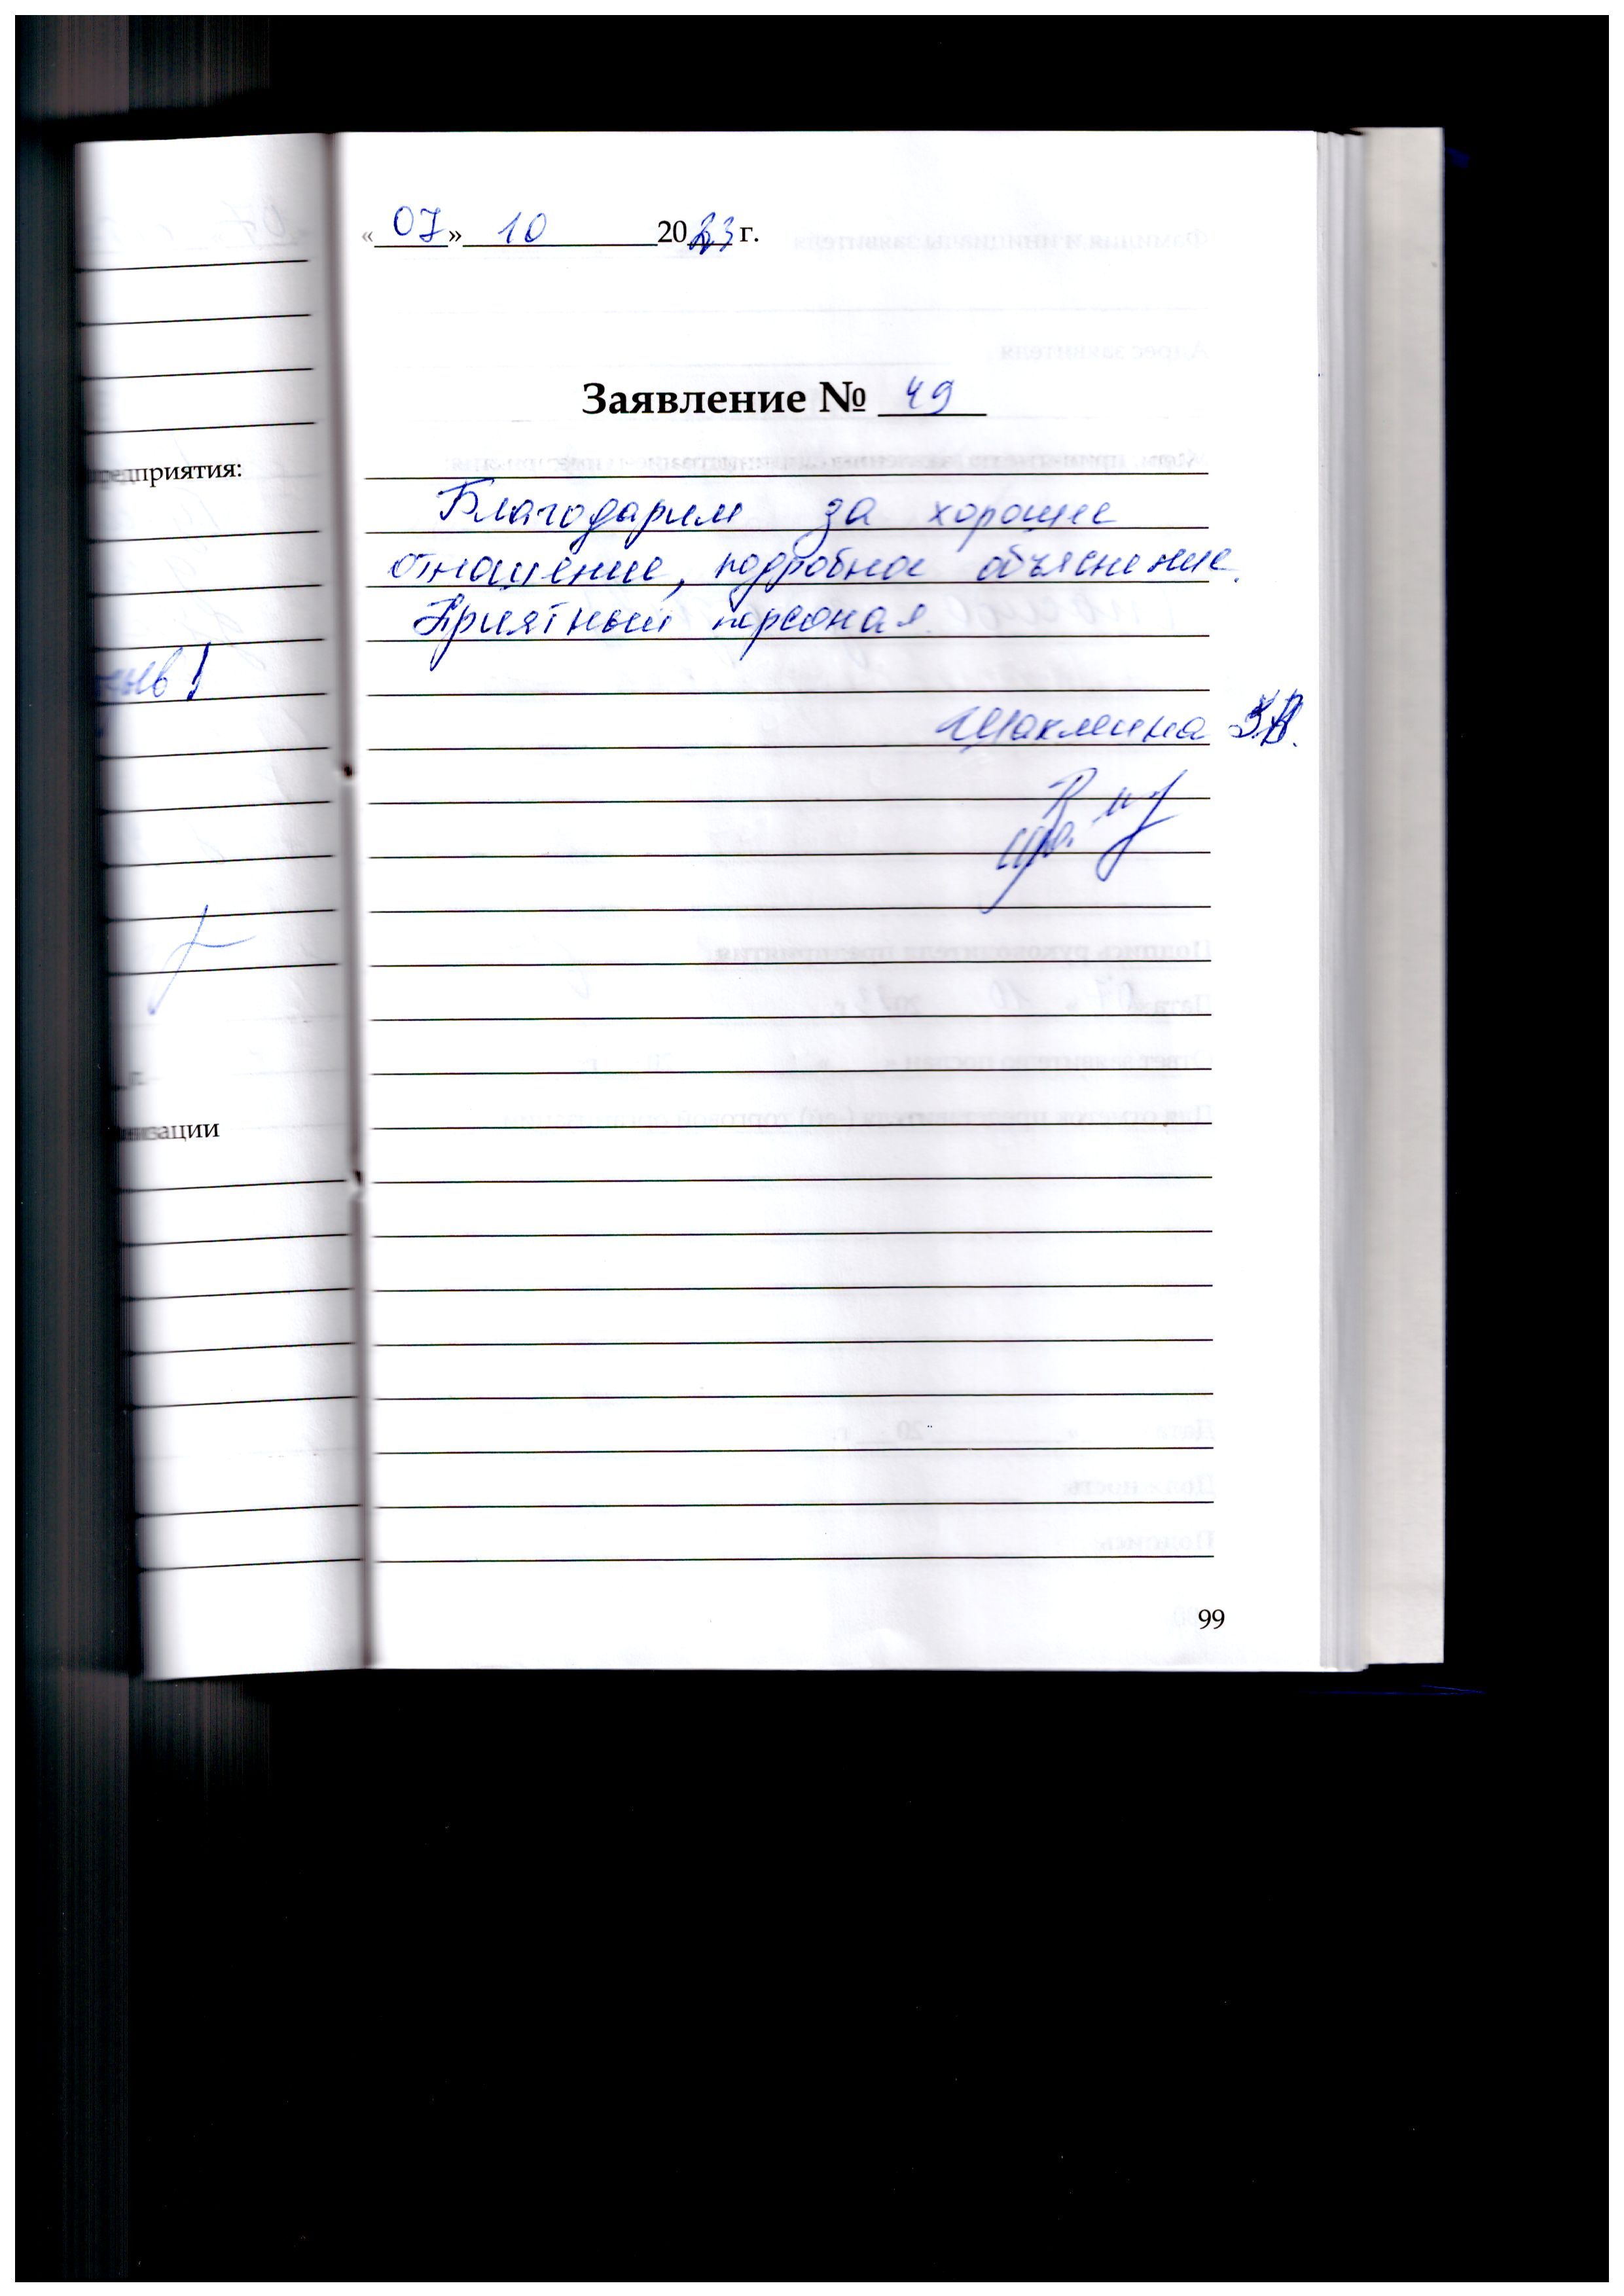 «07» 10 2023 г.
Заявление № 49
Благодарим за хорошее
отношение, подробное объяснение.
Приятный персонал
Шаклеина
99
предприятия: